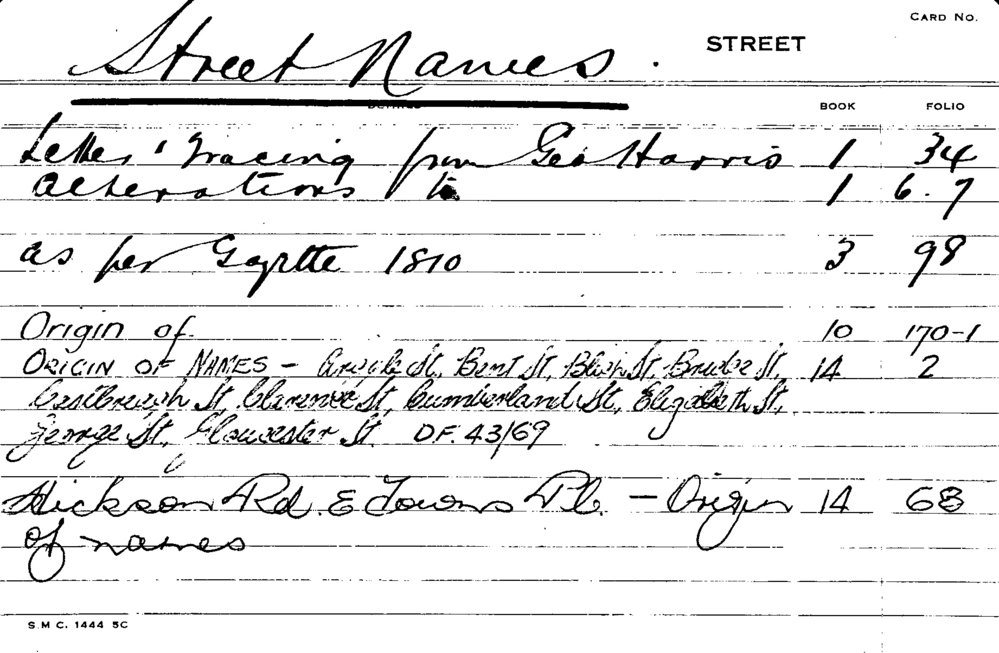 CARD NO.
Street Names. STREET
DETAILS BOOK FOLIO
Letter & Tracing from Geo Harris 1 34
alterations to 1 6.7
as per Gazette 1810 3 98
Origin of 10 170-1
ORIGIN OF NAMES - Argyle St., Bent St., Bligh St., Bridge St., 14 2
Castlereagh St, Clarence St., Cumberland St., Elizabeth St.,
George St., Gloucester St. D.F. 43/69
Hickson Rd. & Towns Pl. - Origin 14 68
of names
S.M.C. 1444 5C